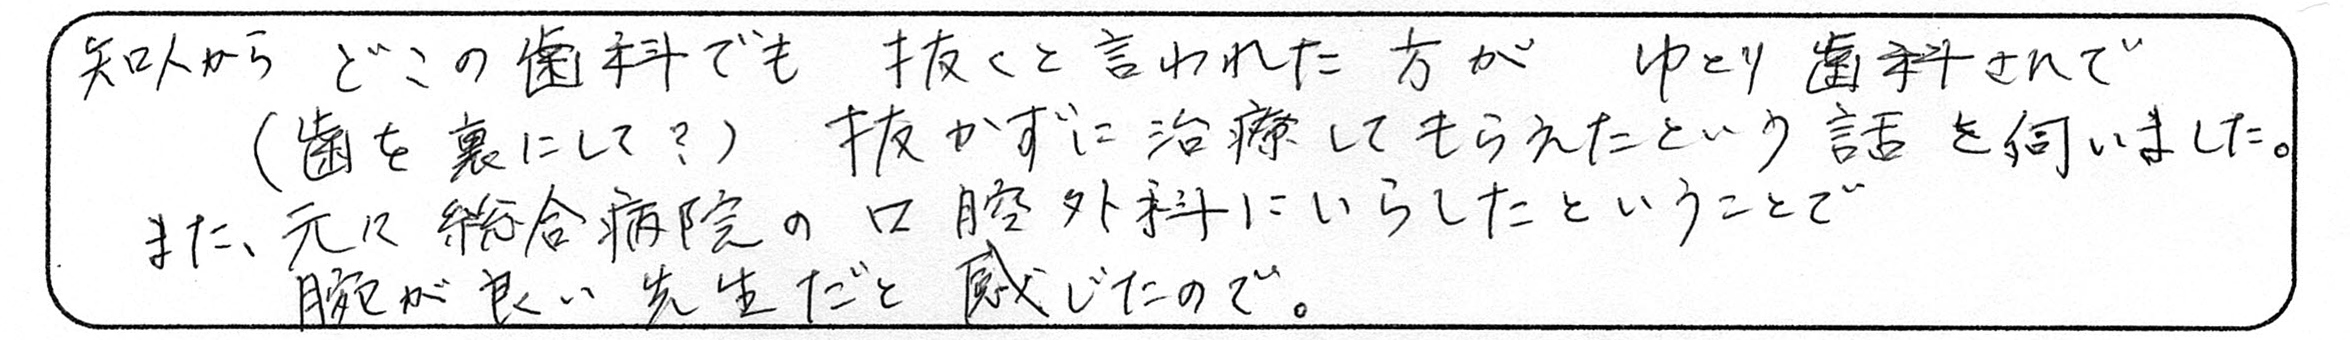 知人から どこの歯科でも 抜くと言われた方が ゆとり歯科さんで
(歯を裏にして?) 抜かずに治療してもらえたという話を伺いました。
また、元は総合病院の口腔外科にいらしたということで
腕が良い先生だと感じたので。